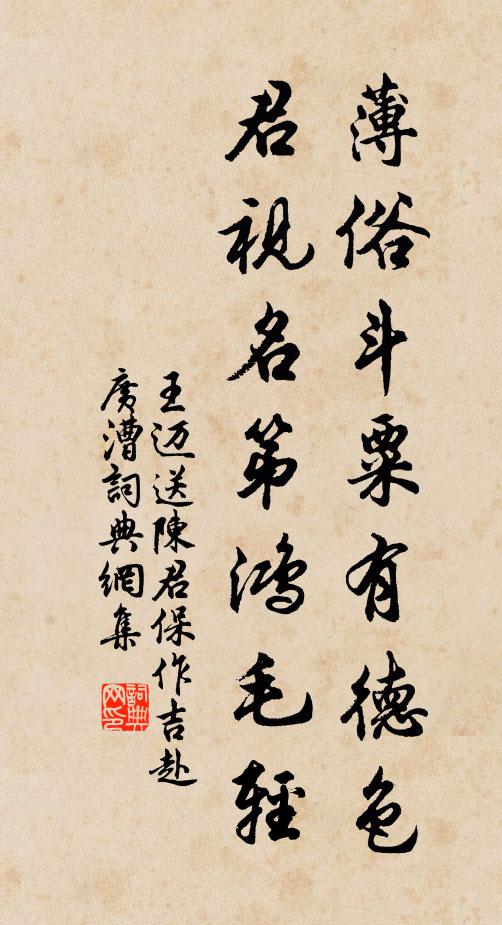 薄俗斗粟有德色
君視名第鴻毛輕
王迈送陳君保作吉赴
廣漕詞典網集
詞典
网印